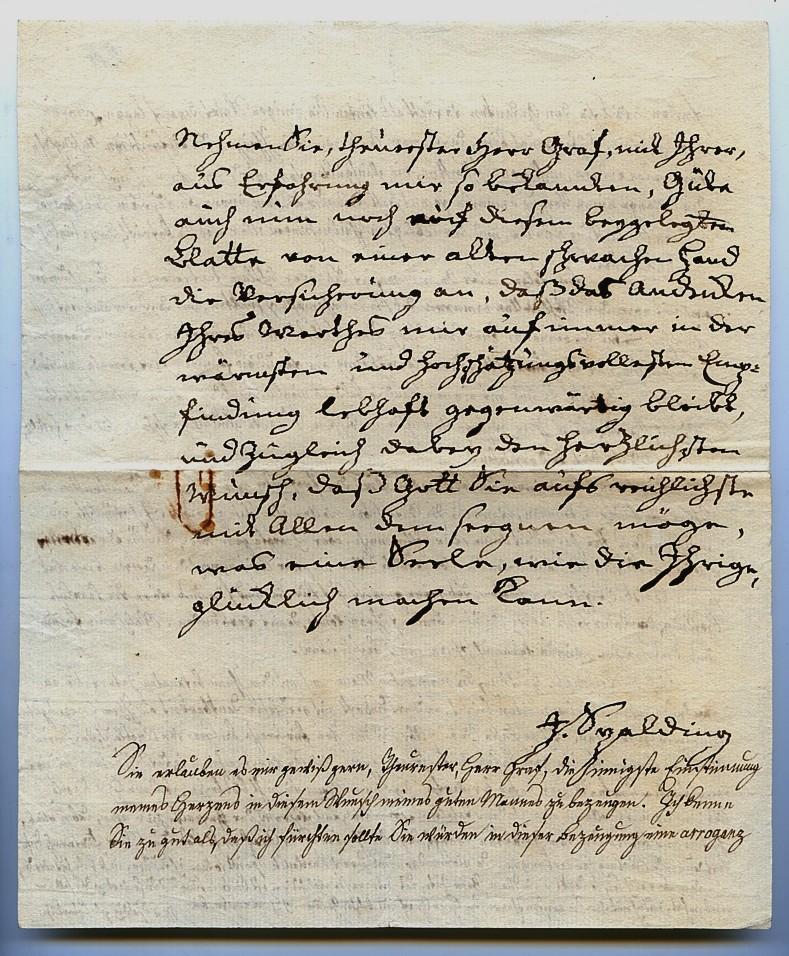 Nehmen Sie, theuerster Herr Graf, mit Ihrer,
aus Erfahrung mir so bekannten, Güte
auch nun noch auf diesem beygelegten
Blatte von einer alten schwachen Hand
die Versicherung an, daß das Andenken
Ihres Werthes mir auf immer in der
wärmsten und hochschätzungsvollesten Emp=
findung lebhaft gegenwärtig bleibt,
und zugleich dabey den herzlichsten
Wunsch, daß Gott Sie aufs reichlichste
mit Allen dem seegnen möge,
was eine Seele, wie die Ihrige,
glücklich machen kann.
J. Spalding
Sie erlauben es mir gewiß gern, Theurester, Herr Graf, die innigste Einstimmung
meines Herzens in diesem Wunsch meines guten Mannes zu bezeugen. Ich kenne
Sie zu gut als daß ich fürchten sollte Sie würden in dieser Bezeugung eine arroganz